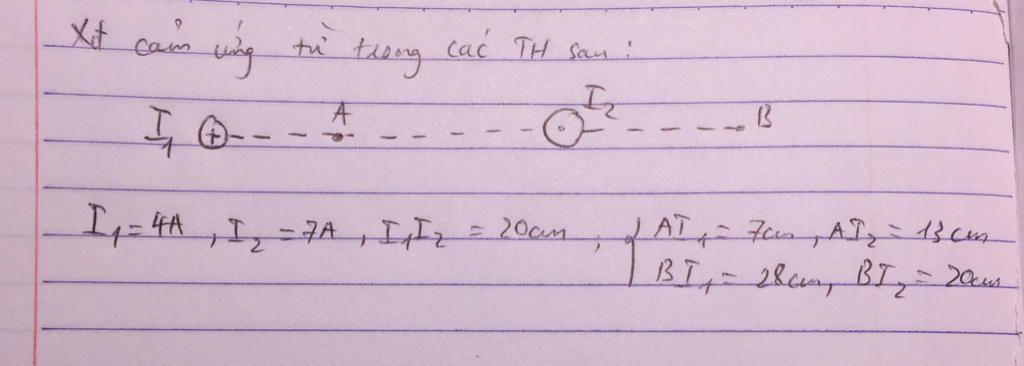 Xét cảm ứng từ trong các TH sau:
I₁ A I₂ B
I₁ = 4A, I₂ = 7A, I₁I₂ = 20cm, { AI₁ = 7cm, AI₂ = 13cm
BI₁ = 28cm, BI₂ = 20cm